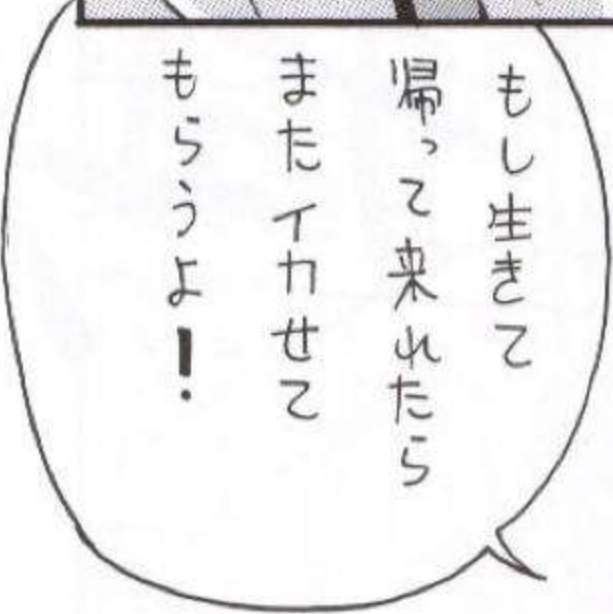 もし生きて
帰って来れたら
またイカせて
もらうよ！